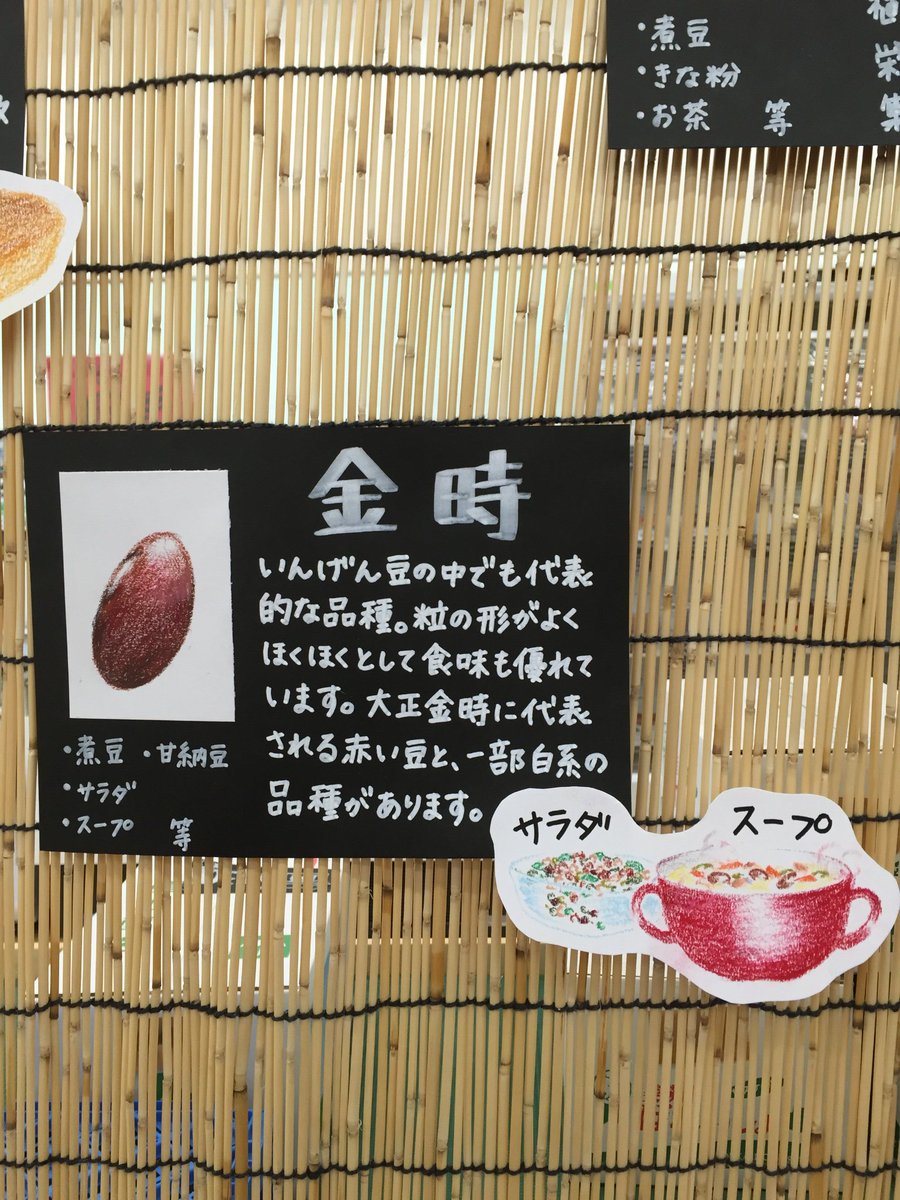 ・煮豆
・きな粉
・お茶 等
金時
いんげん豆の中でも代表
的な品種。粒の形がよく
ほくほくとして食味も優れて
います。大正金時に代表
される赤い豆と、一部白系の
品種があります。
・煮豆 ・甘納豆
・サラダ
・スープ 等
サラダ スープ